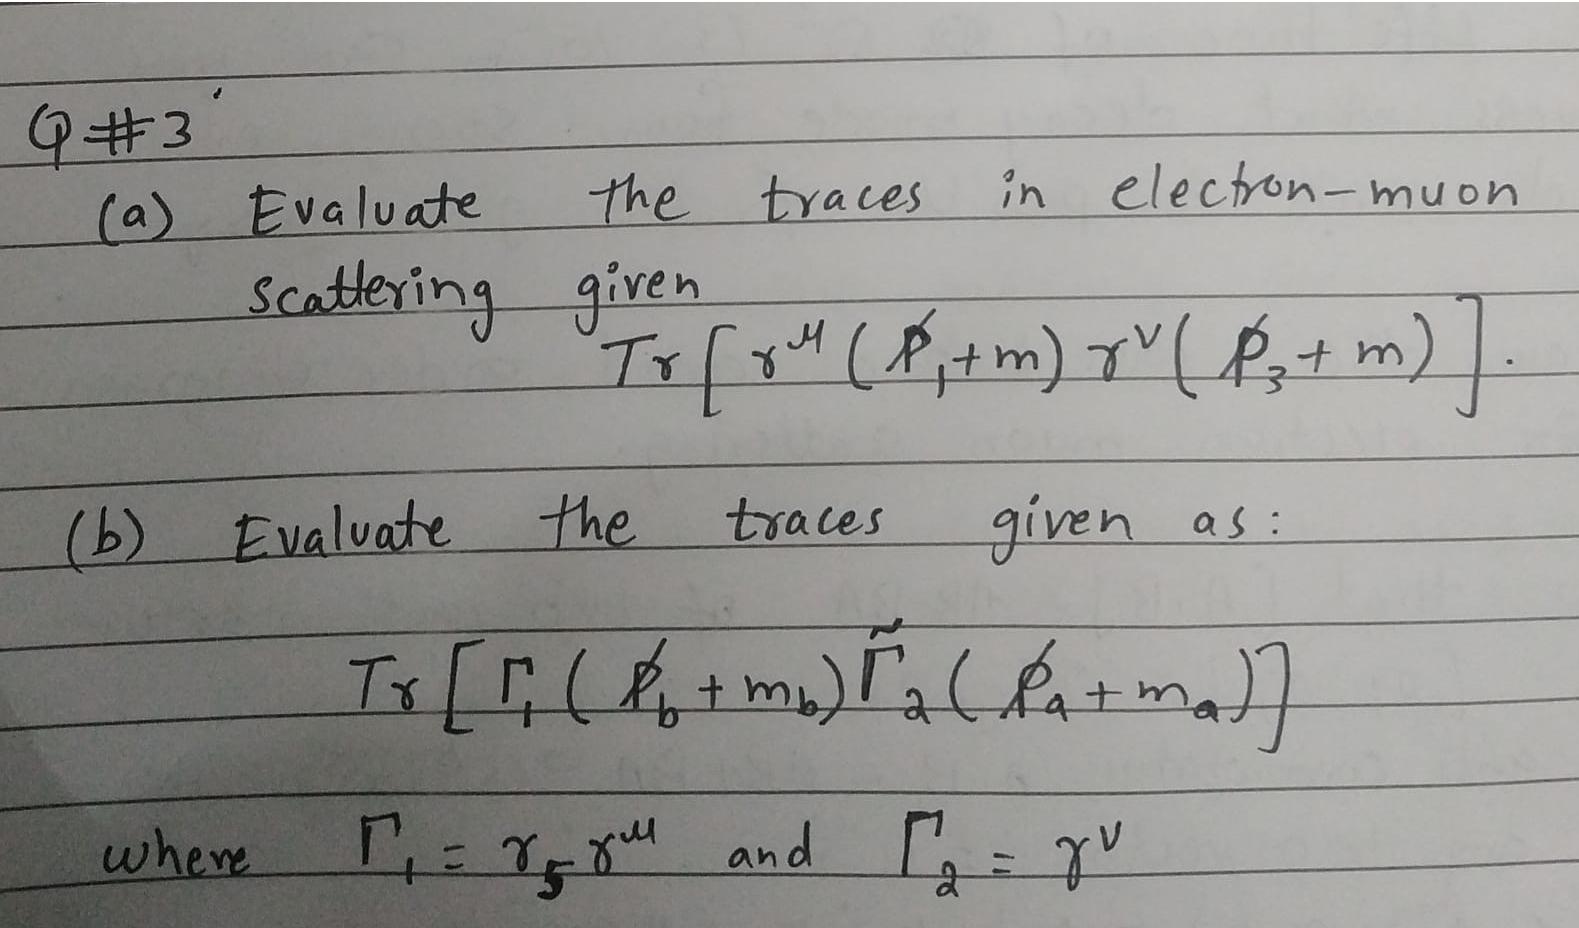 Q#3
(a) Evaluate the traces in electron-muon
scattering given
Tr[γ^μ(p̸₁+m)γ^ν(p̸₃+m)].
(b) Evaluate the traces given as:
Tr[Γ₁(p̸_b+m_b)Γ̃₂(p̸_a+m_a)]
where Γ₁=γ₅γ^μ and Γ₂=γ^ν